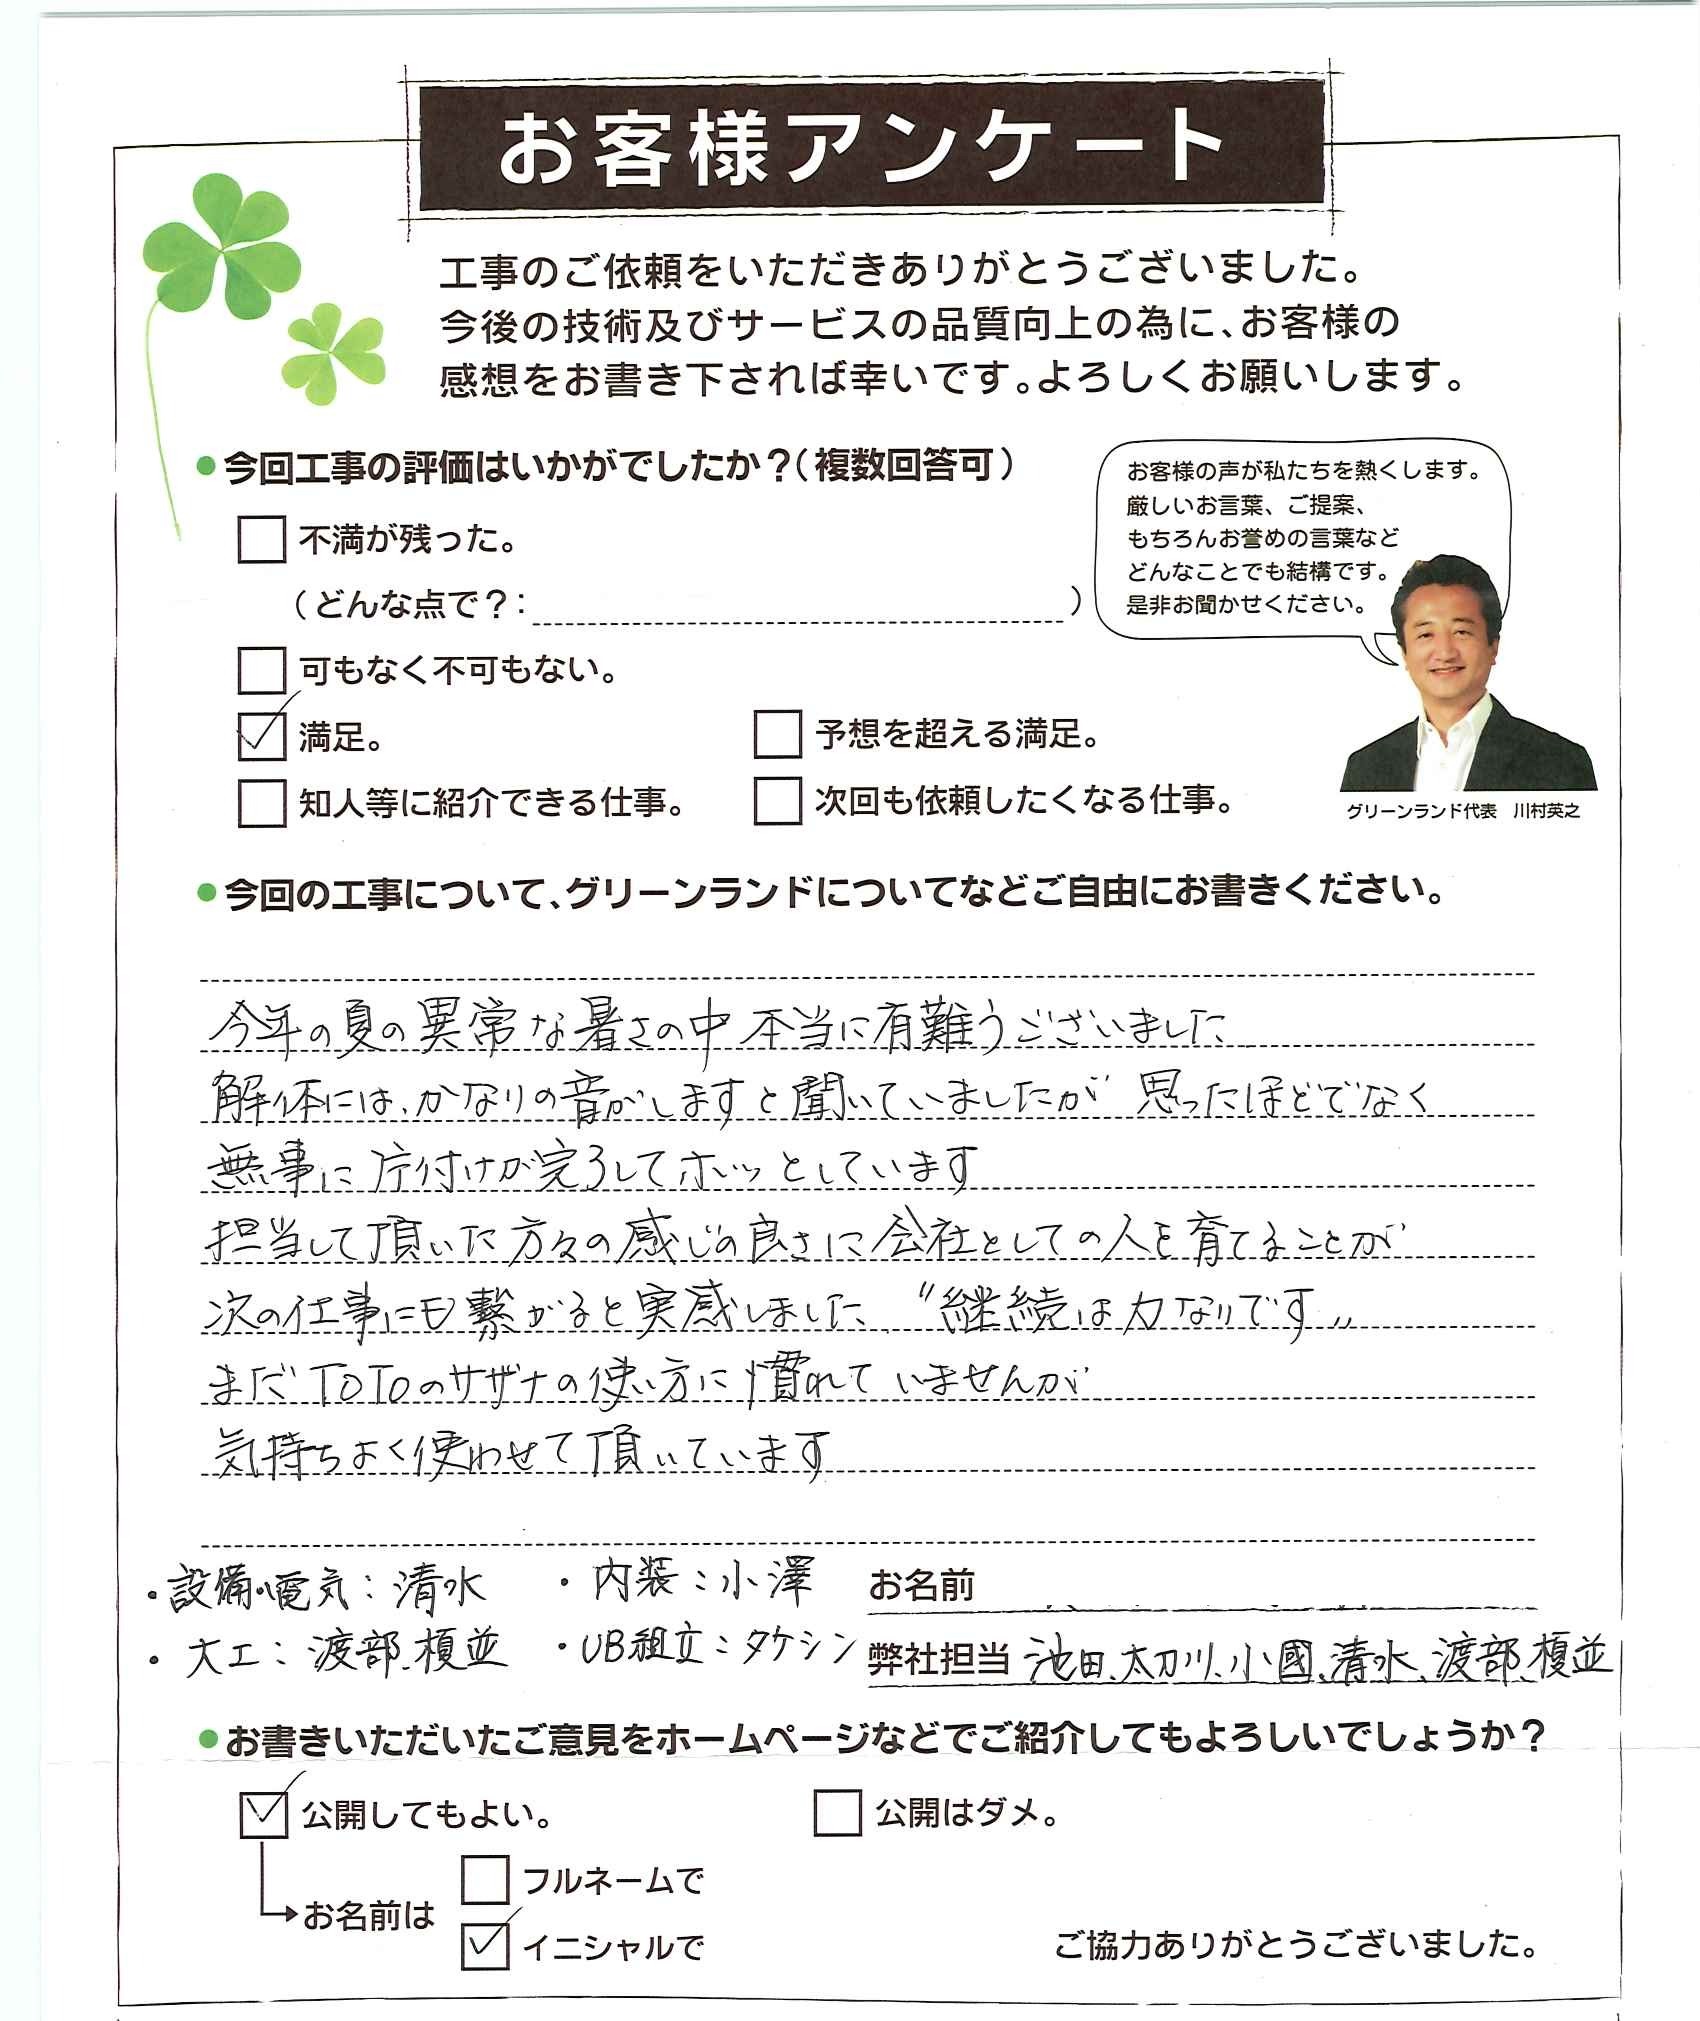 お客様アンケート
工事のご依頼をいただきありがとうございました。
今後の技術及びサービスの品質向上の為に、お客様の
感想をお書き下されば幸いです。よろしくお願いします。
●今回工事の評価はいかがでしたか？（複数回答可）
不満が残った。
（どんな点で？：　）
可もなく不可もない。
満足。
予想を超える満足。
知人等に紹介できる仕事。
次回も依頼したくなる仕事。
お客様の声が私たちを熱くします。
厳しいお言葉、ご提案、
もちろんお誉めの言葉など
どんなことでも結構です。
是非お聞かせください。
グリーンランド代表　川村英之
●今回の工事について、グリーンランドについてなどご自由にお書きください。
今年の夏の異常な暑さの中 本当に有難うございました
解体には、かなりの音がしますと聞いていましたが 思ったほどでなく
無事に片付けが完了してホッとしています
担当して頂いた方々の感じの良さに会社としての人を育てることが
次の仕事にも繋がると実感しました、〝継続は力なりです〟
まだTOTOのサザナの使い方に慣れていませんが
気持ちよく使わせて頂いています
・設備・電気：清水
・内装：小澤
お名前
・大工：渡部、榎並
・UB組立：タケシン
弊社担当 池田、太刀川、小國、清水、渡部、榎並
●お書きいただいたご意見をホームページなどでご紹介してもよろしいでしょうか？
公開してもよい。
公開はダメ。
お名前は
フルネームで
イニシャルで
ご協力ありがとうございました。